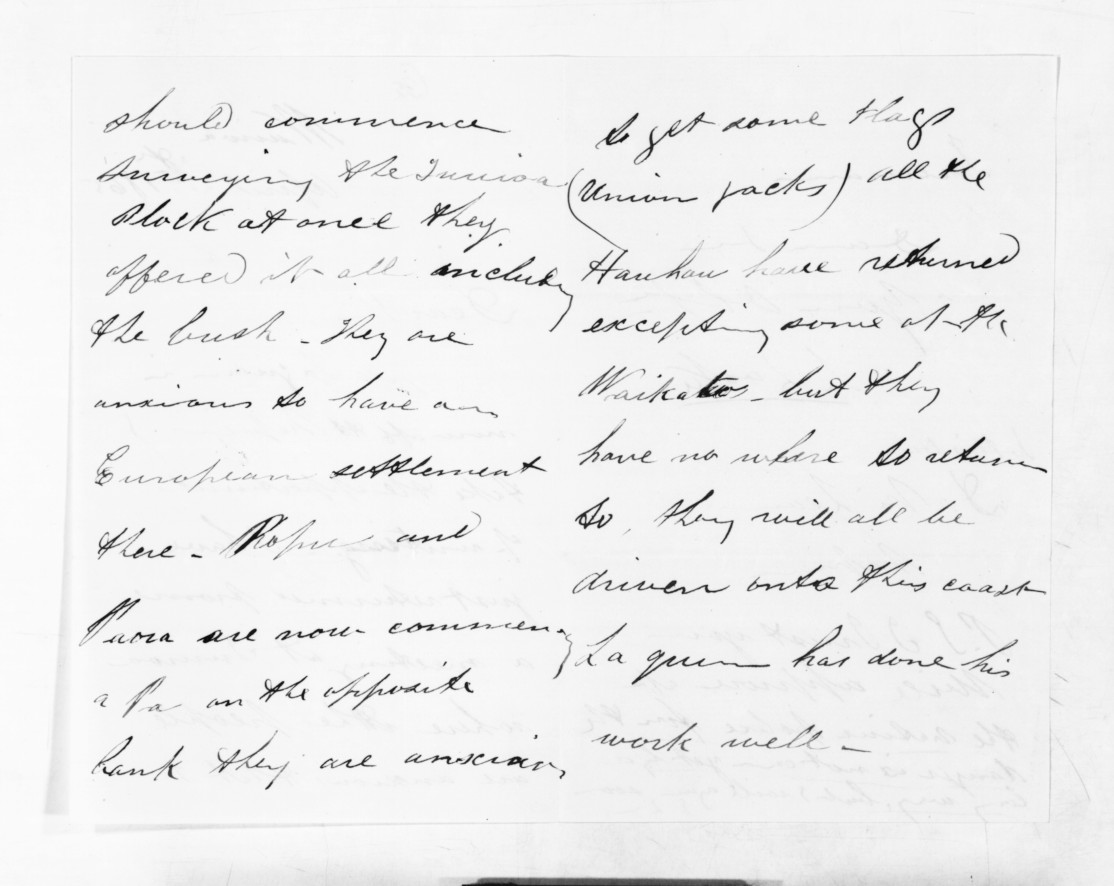 should commence
surveying the
Block at once they
offered it all includg
the bush - They are
anxious to have an
European settlement
there - Ropu and
Paora are now commencg
a Pa on the opposite
bank they are anxious
to get some flags
(Union Jacks) all the
Hauhau have returned
excepting some of the
Waikatos - but they
have no where to return
to, they will all be
driven onto this coast
has done his
work well -